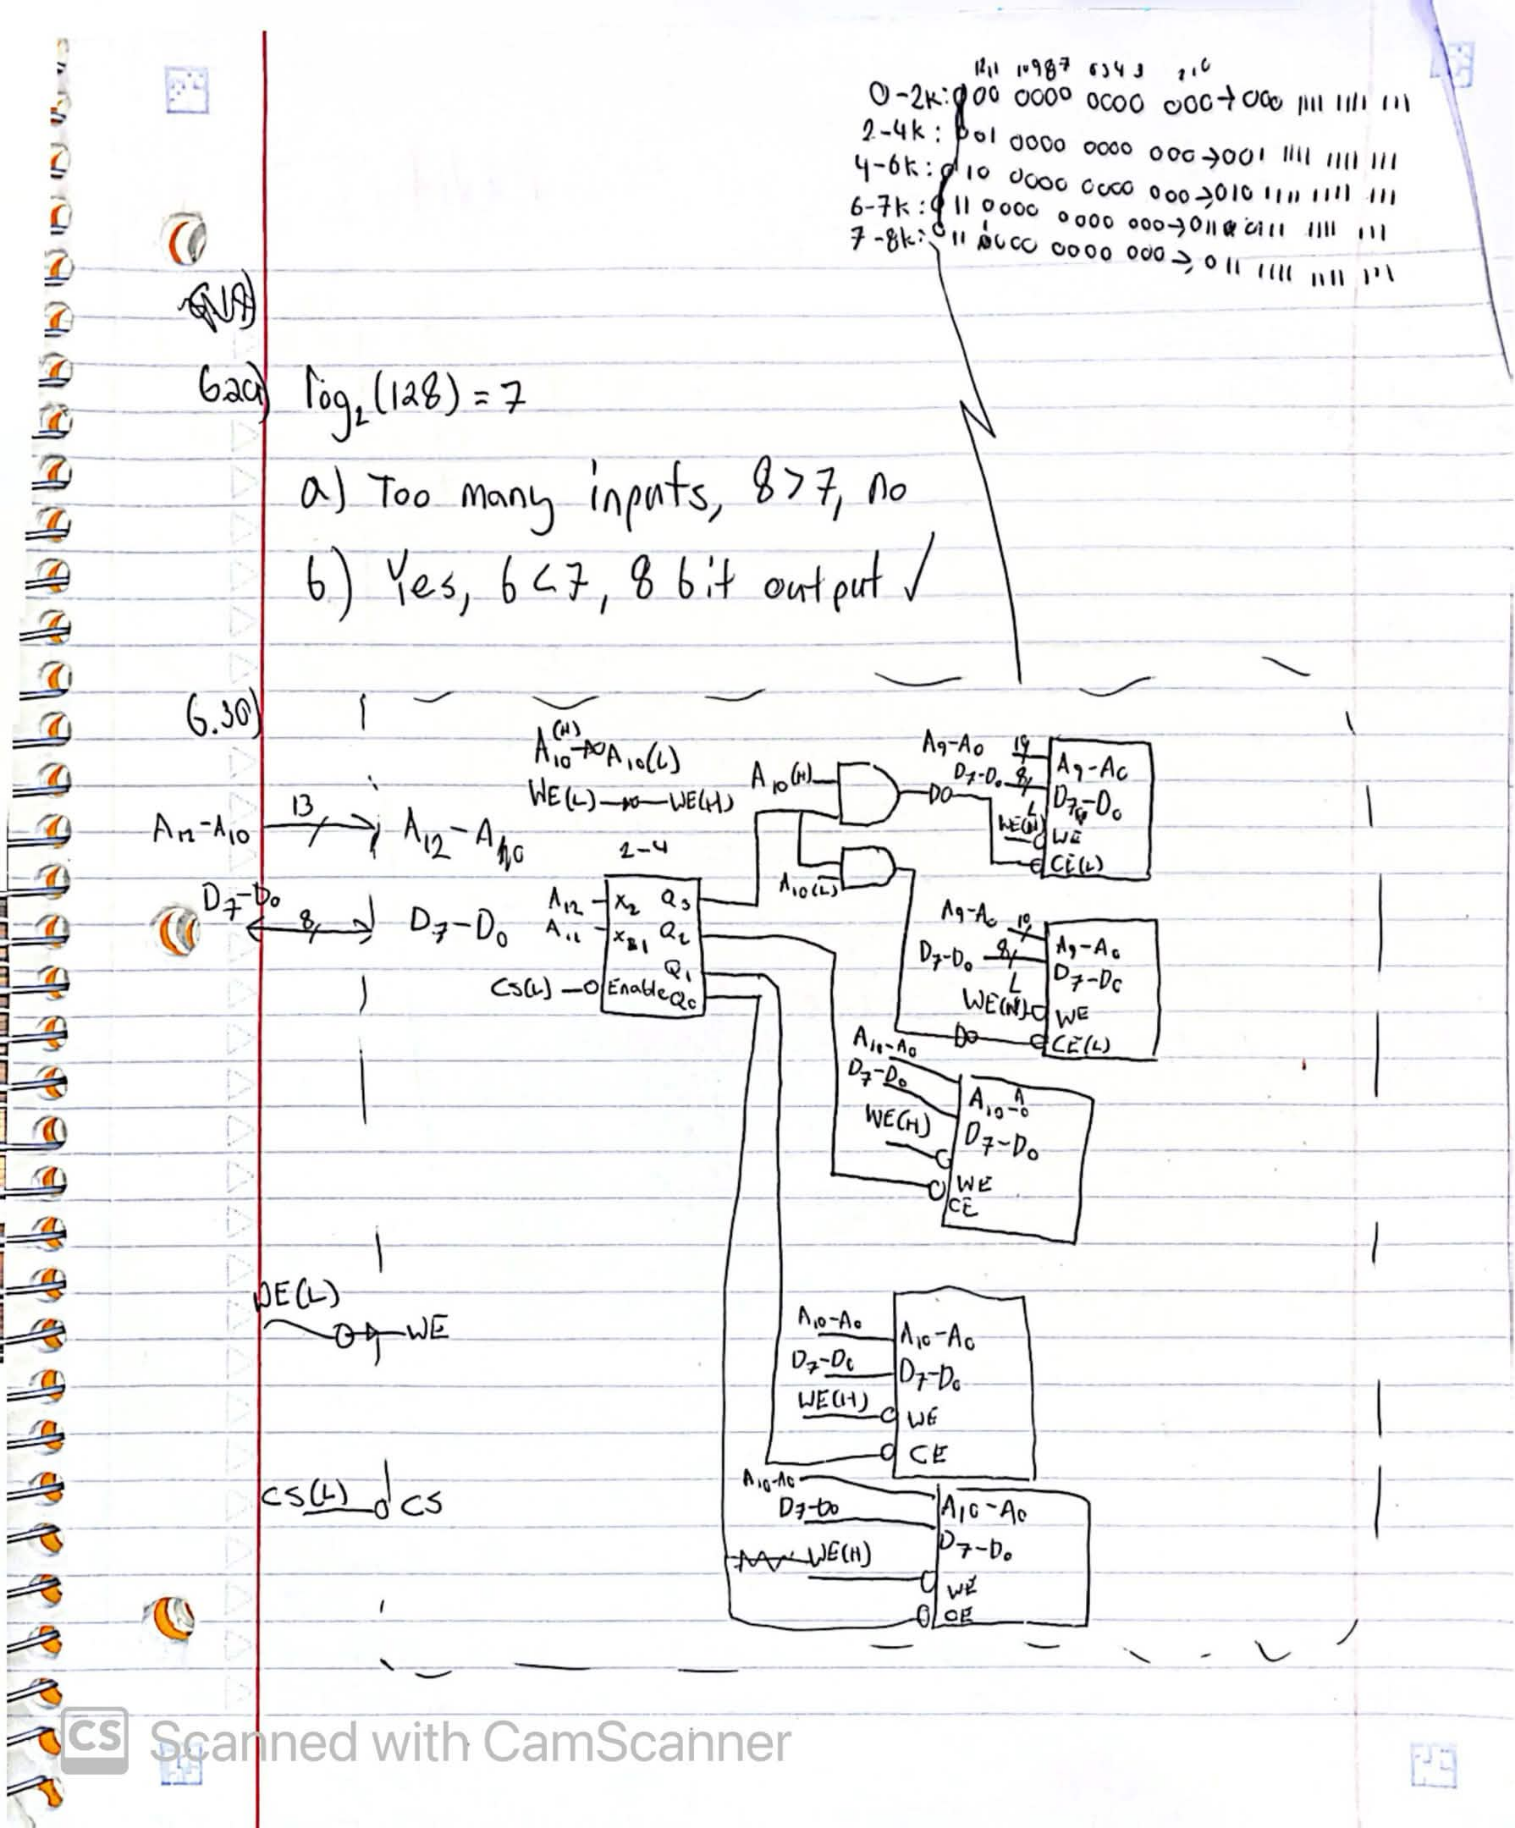 12 11 10 9 8 7 6 5 4 3 2 1 0
0-2k: 000 0000 0000 000→000 1111 1111 111
2-4k: 001 0000 0000 000→001 1111 1111 111
4-6k: 010 0000 0000 000→010 1111 1111 111
6-7k: 011 0000 0000 000→011 0111 1111 111
7-8k: 011 1000 0000 000→ 011 1111 1111 111
6.2a) log₂(128) = 7
a) Too many inputs, 8>7, no
b) Yes, 6<7, 8 bit output ✓
6.30)
A₁₀(H) A₁₀(L)
WE(L) WE(H)
A₁₂-A₁₀ 13 A₁₂-A₁₀
D₇-D₀ 8 D₇-D₀
2-4
A₁₂ X₂ Q₃
A₁₁ X₁ Q₂
Q₁
CS(L) Enable Q₀
A₁₀(H)
A₁₀(L)
A₉-A₀ A₉-A₀
D₇-D₀ 8 D₇-D₀
L
WE WE
CE(L)
A₉-A₀ 10 A₉-A₀
D₇-D₀ 8 D₇-D₀
L
WE WE
CE(L)
A₁₀-A₀ A₁₀-A₀
D₇-D₀ D₇-D₀
WE(H) WE
CE
WE
CS(L) CS
A₁₀-A₀ A₁₀-A₀
D₇-D₀ D₇-D₀
WE(H) WE
CE
A₁₀-A₀ A₁₀-A₀
D₇-D₀ D₇-D₀
WE(H) WE
CE
CS Scanned with CamScanner